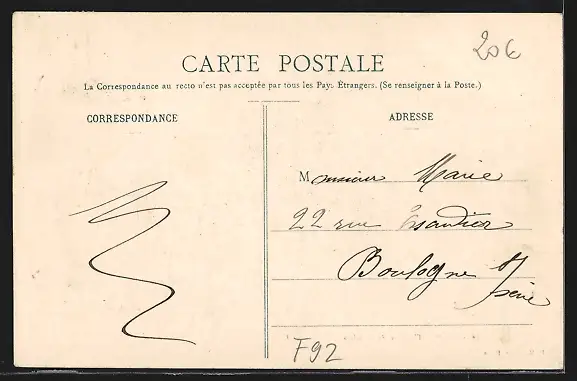 20€
CARTE POSTALE
La Correspondance au recto n'est pas acceptée par tous les Pays Étrangers. (Se renseigner à la Poste.)
CORRESPONDANCE
ADRESSE
Monsieur Marie
22 rue
Boulogne s/
seine
F92